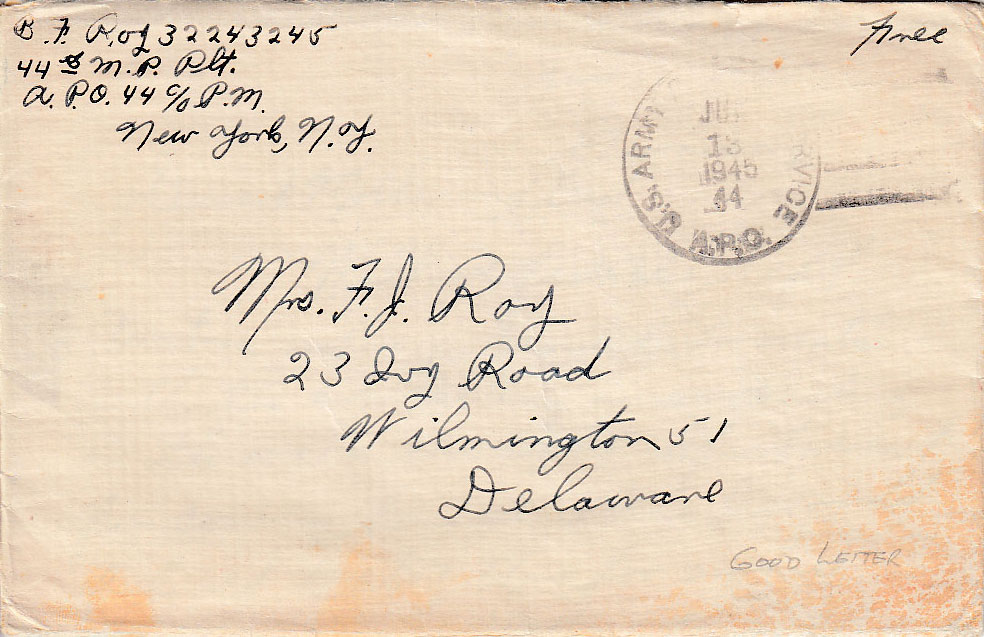 B. F. Roy 32243245
44th M.P. Plt.
A.P.O. 44 c/o P.M.
New York, N.Y.
Free
U.S. ARMY
13
1945
44
A.P.O.
Mrs. F. J. Roy
23 Ivy Road
Wilmington 51
Delaware
GOOD LETTER